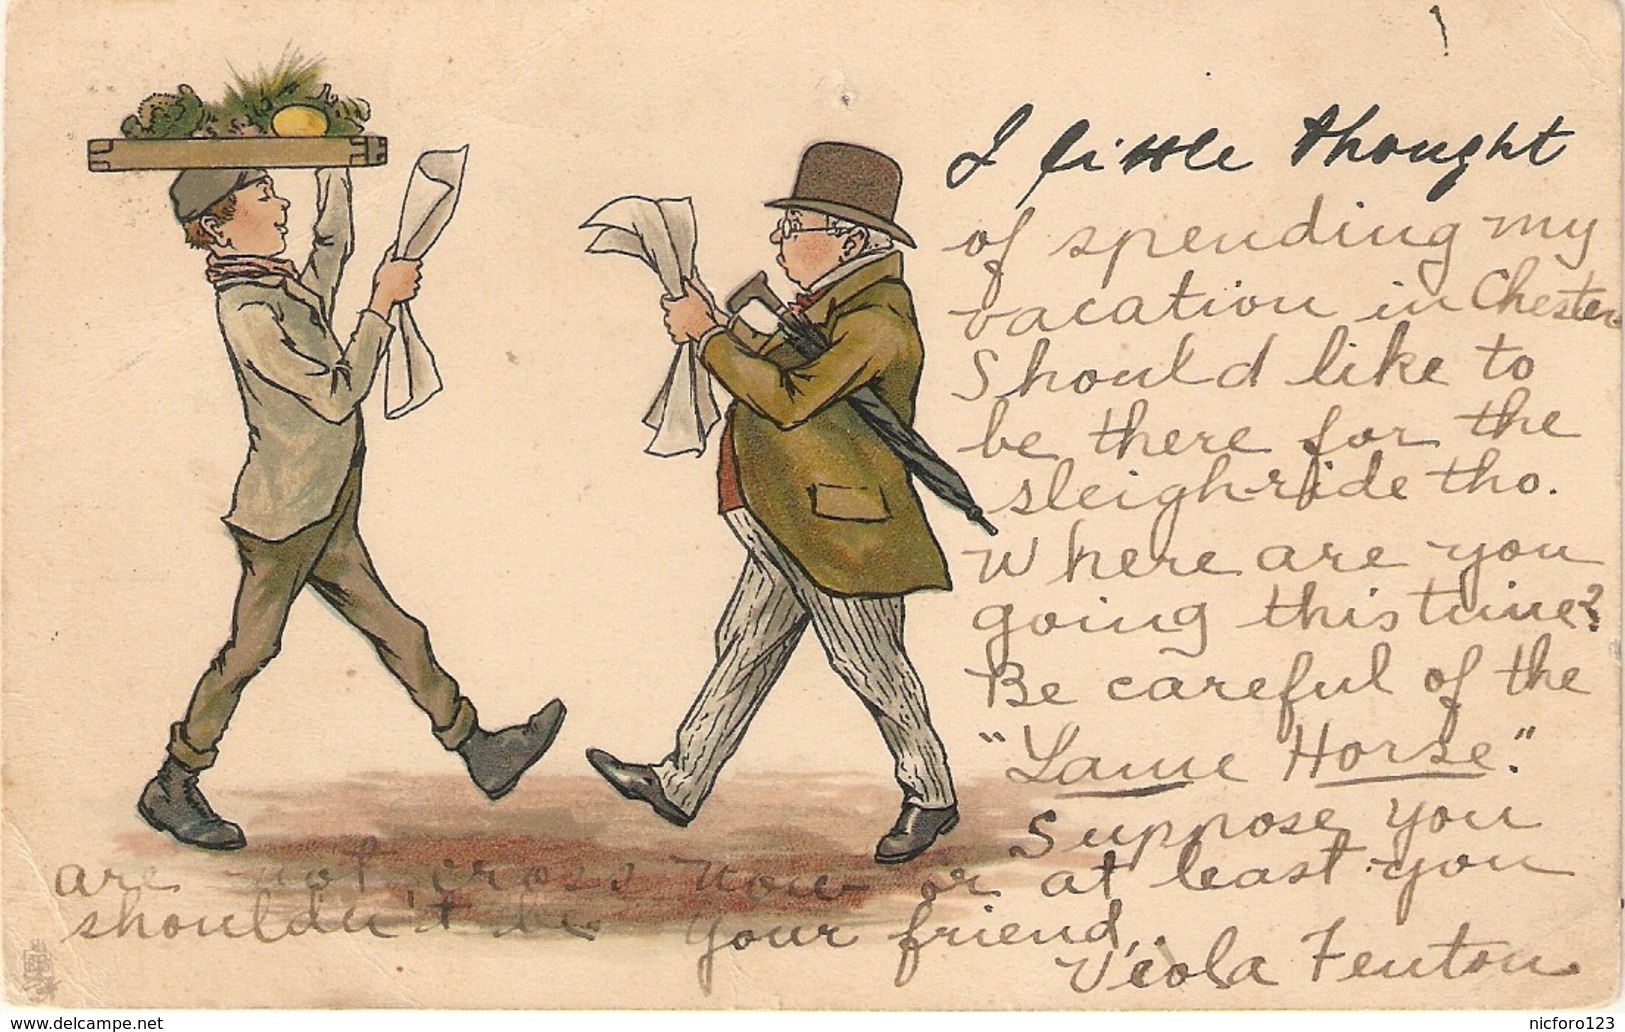 I little thought
of spending my
vacation in Chester
Should like to
be there for the
sleigh-ride tho.
Where are you
going this time?
Be careful of the
"Lame Horse."
Suppose you
are not cross now or at least you
shouldn't be. your friend,
Viola Fenton.
www.delcampe.net
nicforo123